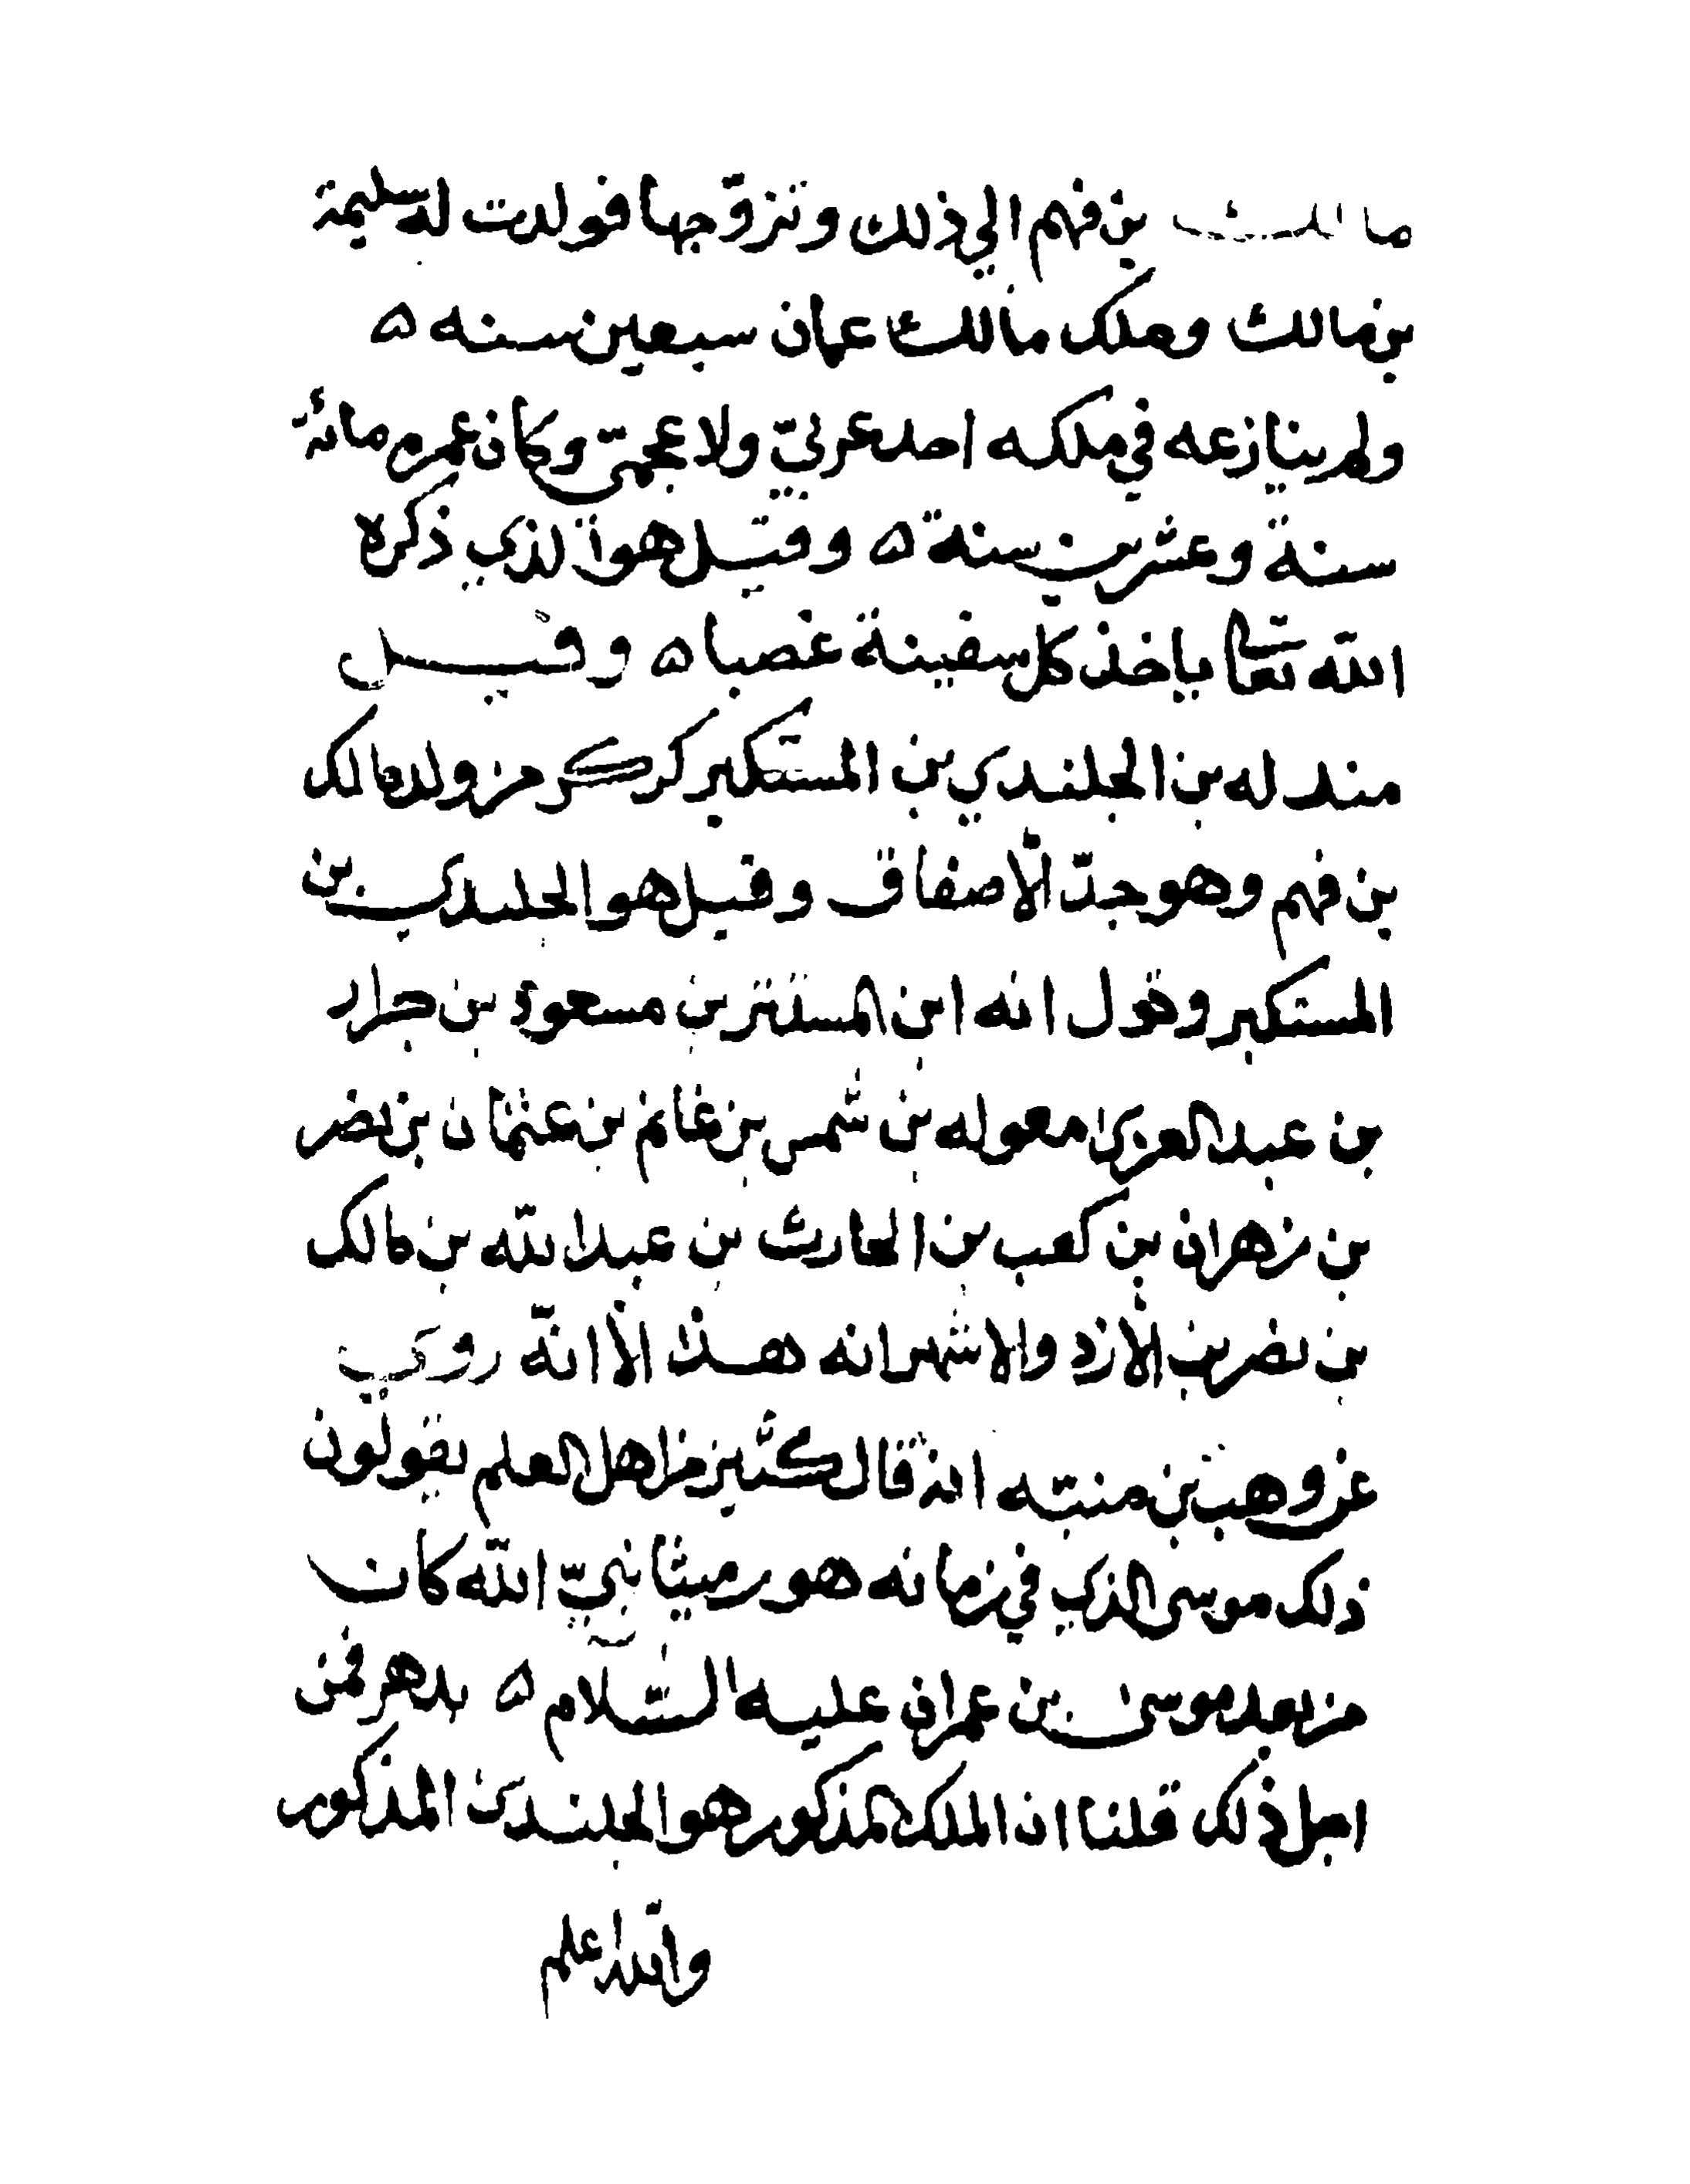 مالك بن فهم الي ذلك وتزوّجها فولدت له سليمة
بن مالك وملك مالك عمان سبعين سنه ۵
ولم ينازعه في ملكه احد عربيّ ولا عجميّ وكان عمره مائة
سنة وعشرين سنة ۵ وقيل هو الذي ذكره
الله تعالى ياخذ كل سفينة غصبا ۵ وقيل
مندله بن الجلندي بن المستكبر كركر من ولد مالك
بن فهم وهو جدّ الأصفاق وقيل هو الجلندى بن
المستكبر وقول انه ابن المستتر بن مسعود بن جرار
بن عبد العزى معوله بن شمس بن غانم بن عثمان بن نصر
بن زهران بن كعب بن الحارث بن عبدالله بن مالك
بن نصر بن الأزد والاشهر انه هذا الأ انّه روي
عن وهب بن منبّه انه قال كثير من اهل العلم يقولون
ذلك موسى الذي في زمانه هو ميثا نبيّ الله كان
من بعد موسى بن عمران عليه السّلام ۵ بدهر فمن
اجل ذلك قلنا ان الملك المذكور هو الجلندى المذكور
والله اعلم